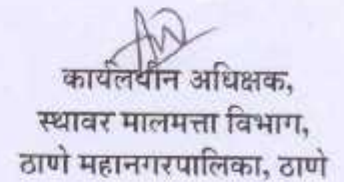 कार्यलयीन अधिक्षक,
स्थावर मालमत्ता विभाग,
ठाणे महानगरपालिका, ठाणे